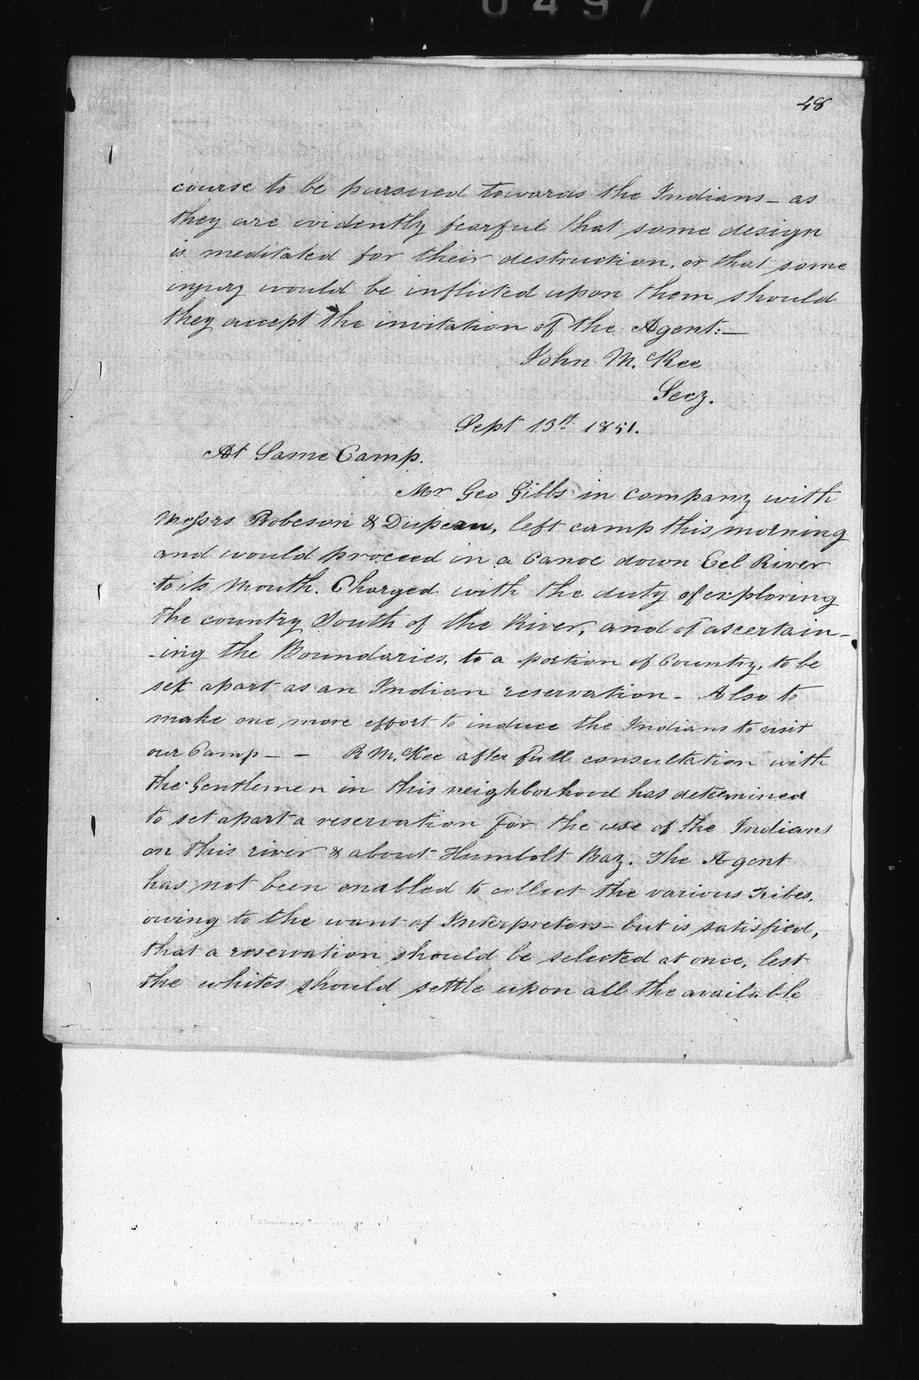 0497
48
course to be pursued towards the Indians - as
they are evidently fearful that some design
is meditated for their destruction, or that some
injury would be inflicted upon them should
they accept the invitation of the Agent: —
John McKee
Secy.
Sept 13th 1851.
At Same Camp.
Mr Geo Gibbs in company with
Messrs Robeson & Dupern, left camp this morning
and would proceed in a Canoe down Eel River
to its Mouth. Charged with the duty of exploring
the country South of the River, and of ascertain-
-ing the Boundaries, to a portion of Country, to be
set apart as an Indian reservation - Also to
make one more effort to induce the Indians to visit
our Camp - - R McKee after full consultation with
the Gentlemen in this neighborhood has determined
to set apart a reservation for the use of the Indians
on this river & about Humbolt Bay. The Agent
has not been enabled to collect the various Tribes,
owing to the want of Interpretors - but is satisfied,
that a reservation should be selected at once, lest
the whites should settle upon all the available